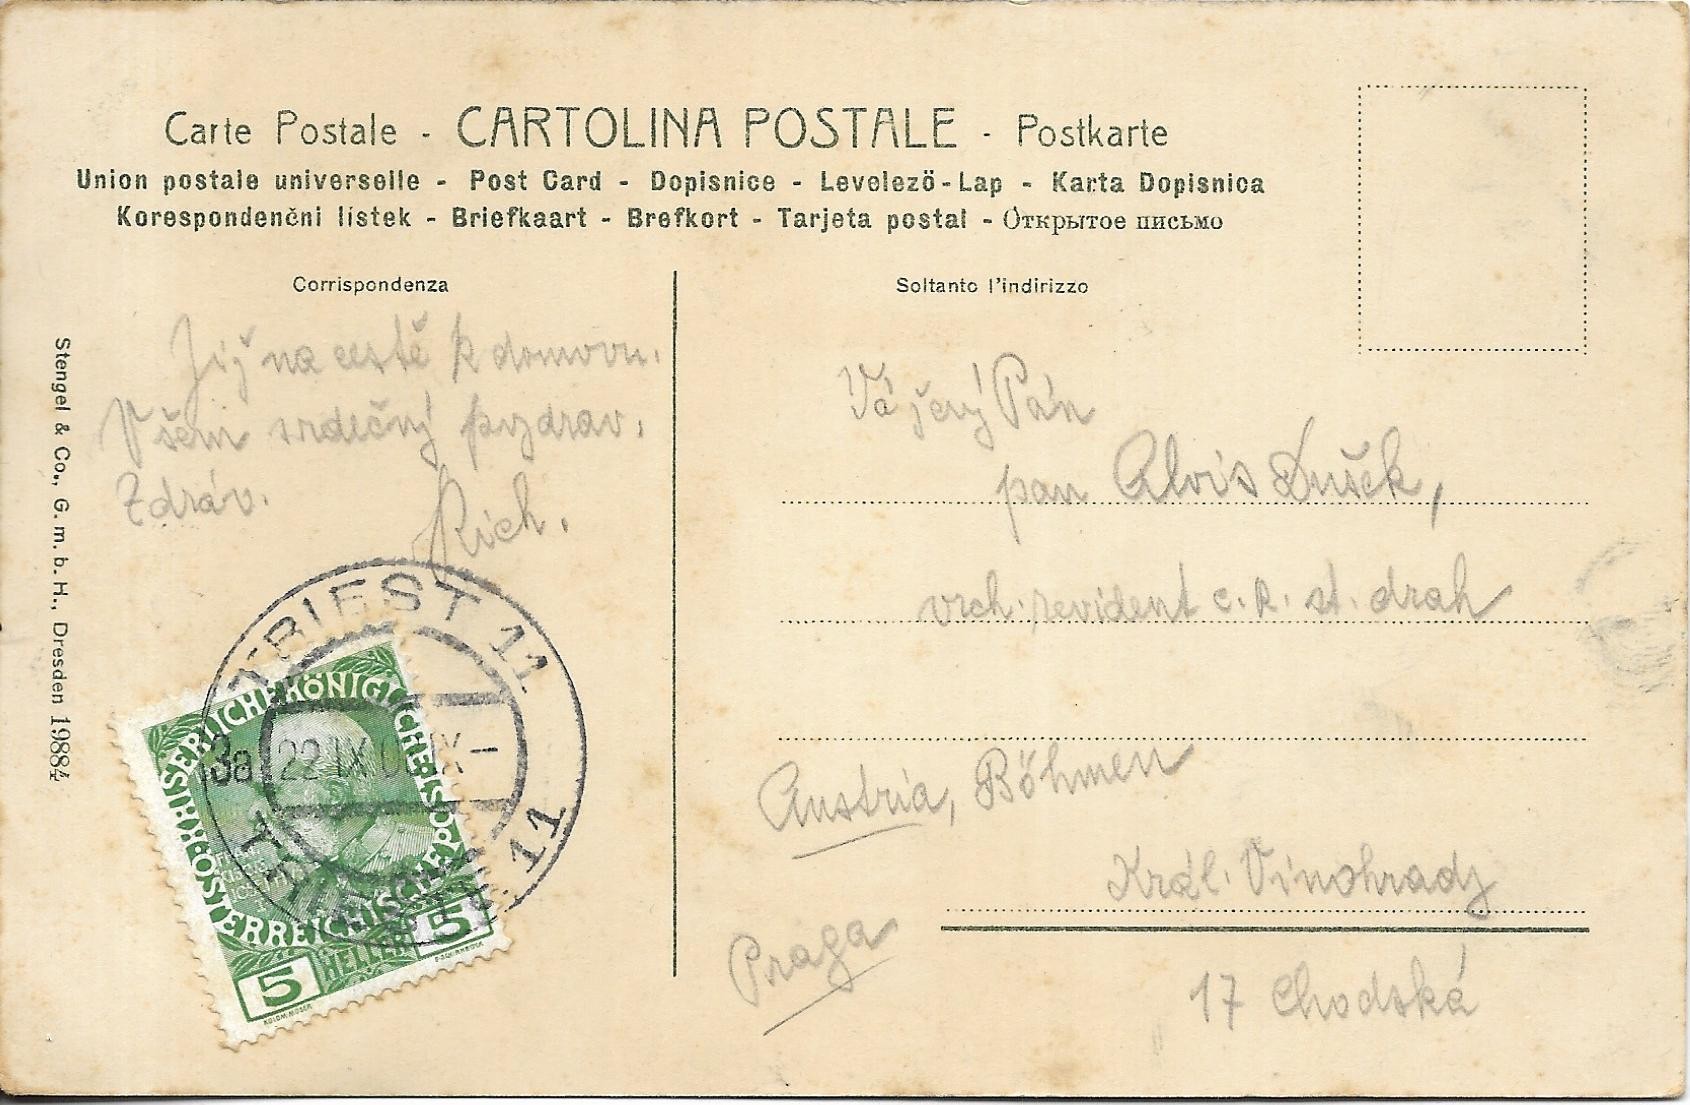 Carte Postale - CARTOLINA POSTALE - Postkarte
Union postale universelle - Post Card - Dopisnice - Levelező-Lap - Karta Dopisnica
Korespondenčni lístek - Briefkaart - Brefkort - Tarjeta postal - Открытое письмо
Corrispondenza
Již na cestě k domovu.
Všem srdečný pozdrav.
Zdráv.
Rich.
Soltanto l'indirizzo
Vážený Pán
pan Alois Dušek,
vrch. revident c. k. st. drah
Austria, Böhmen
Král. Vinohrady
Praga
17 Chodská
Stengel & Co., G. m. b. H., Dresden 19884
TRIEST 11
3a 22 IX
11
KAISERLICHE KÖNIGLICHE
ÖSTERREICHISCHE
5 HELLER 5